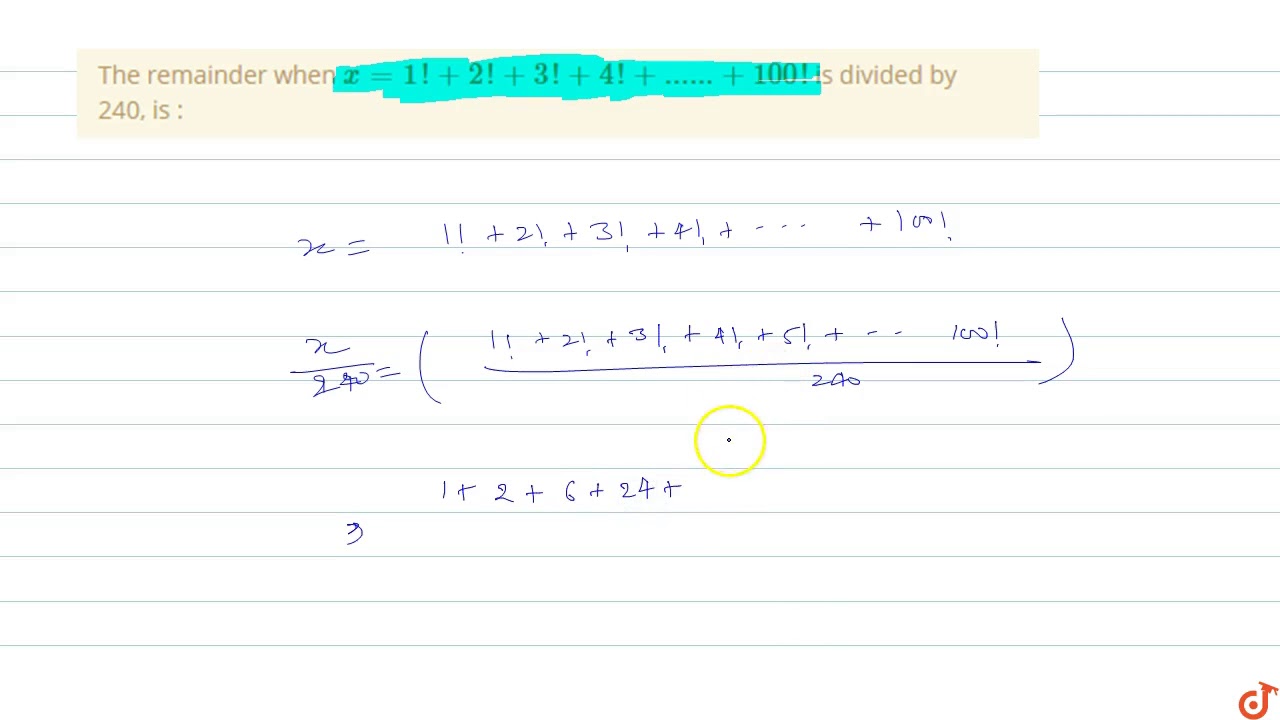 The remainder when x = 1! + 2! + 3! + 4! + ...... + 100! is divided by
240, is :
x = 1! + 2! + 3! + 4! + --- + 100!
x/240 = ( 1! + 2! + 3! + 4! + 5! + -- 100! / 240 )
1 + 2 + 6 + 24 +
3